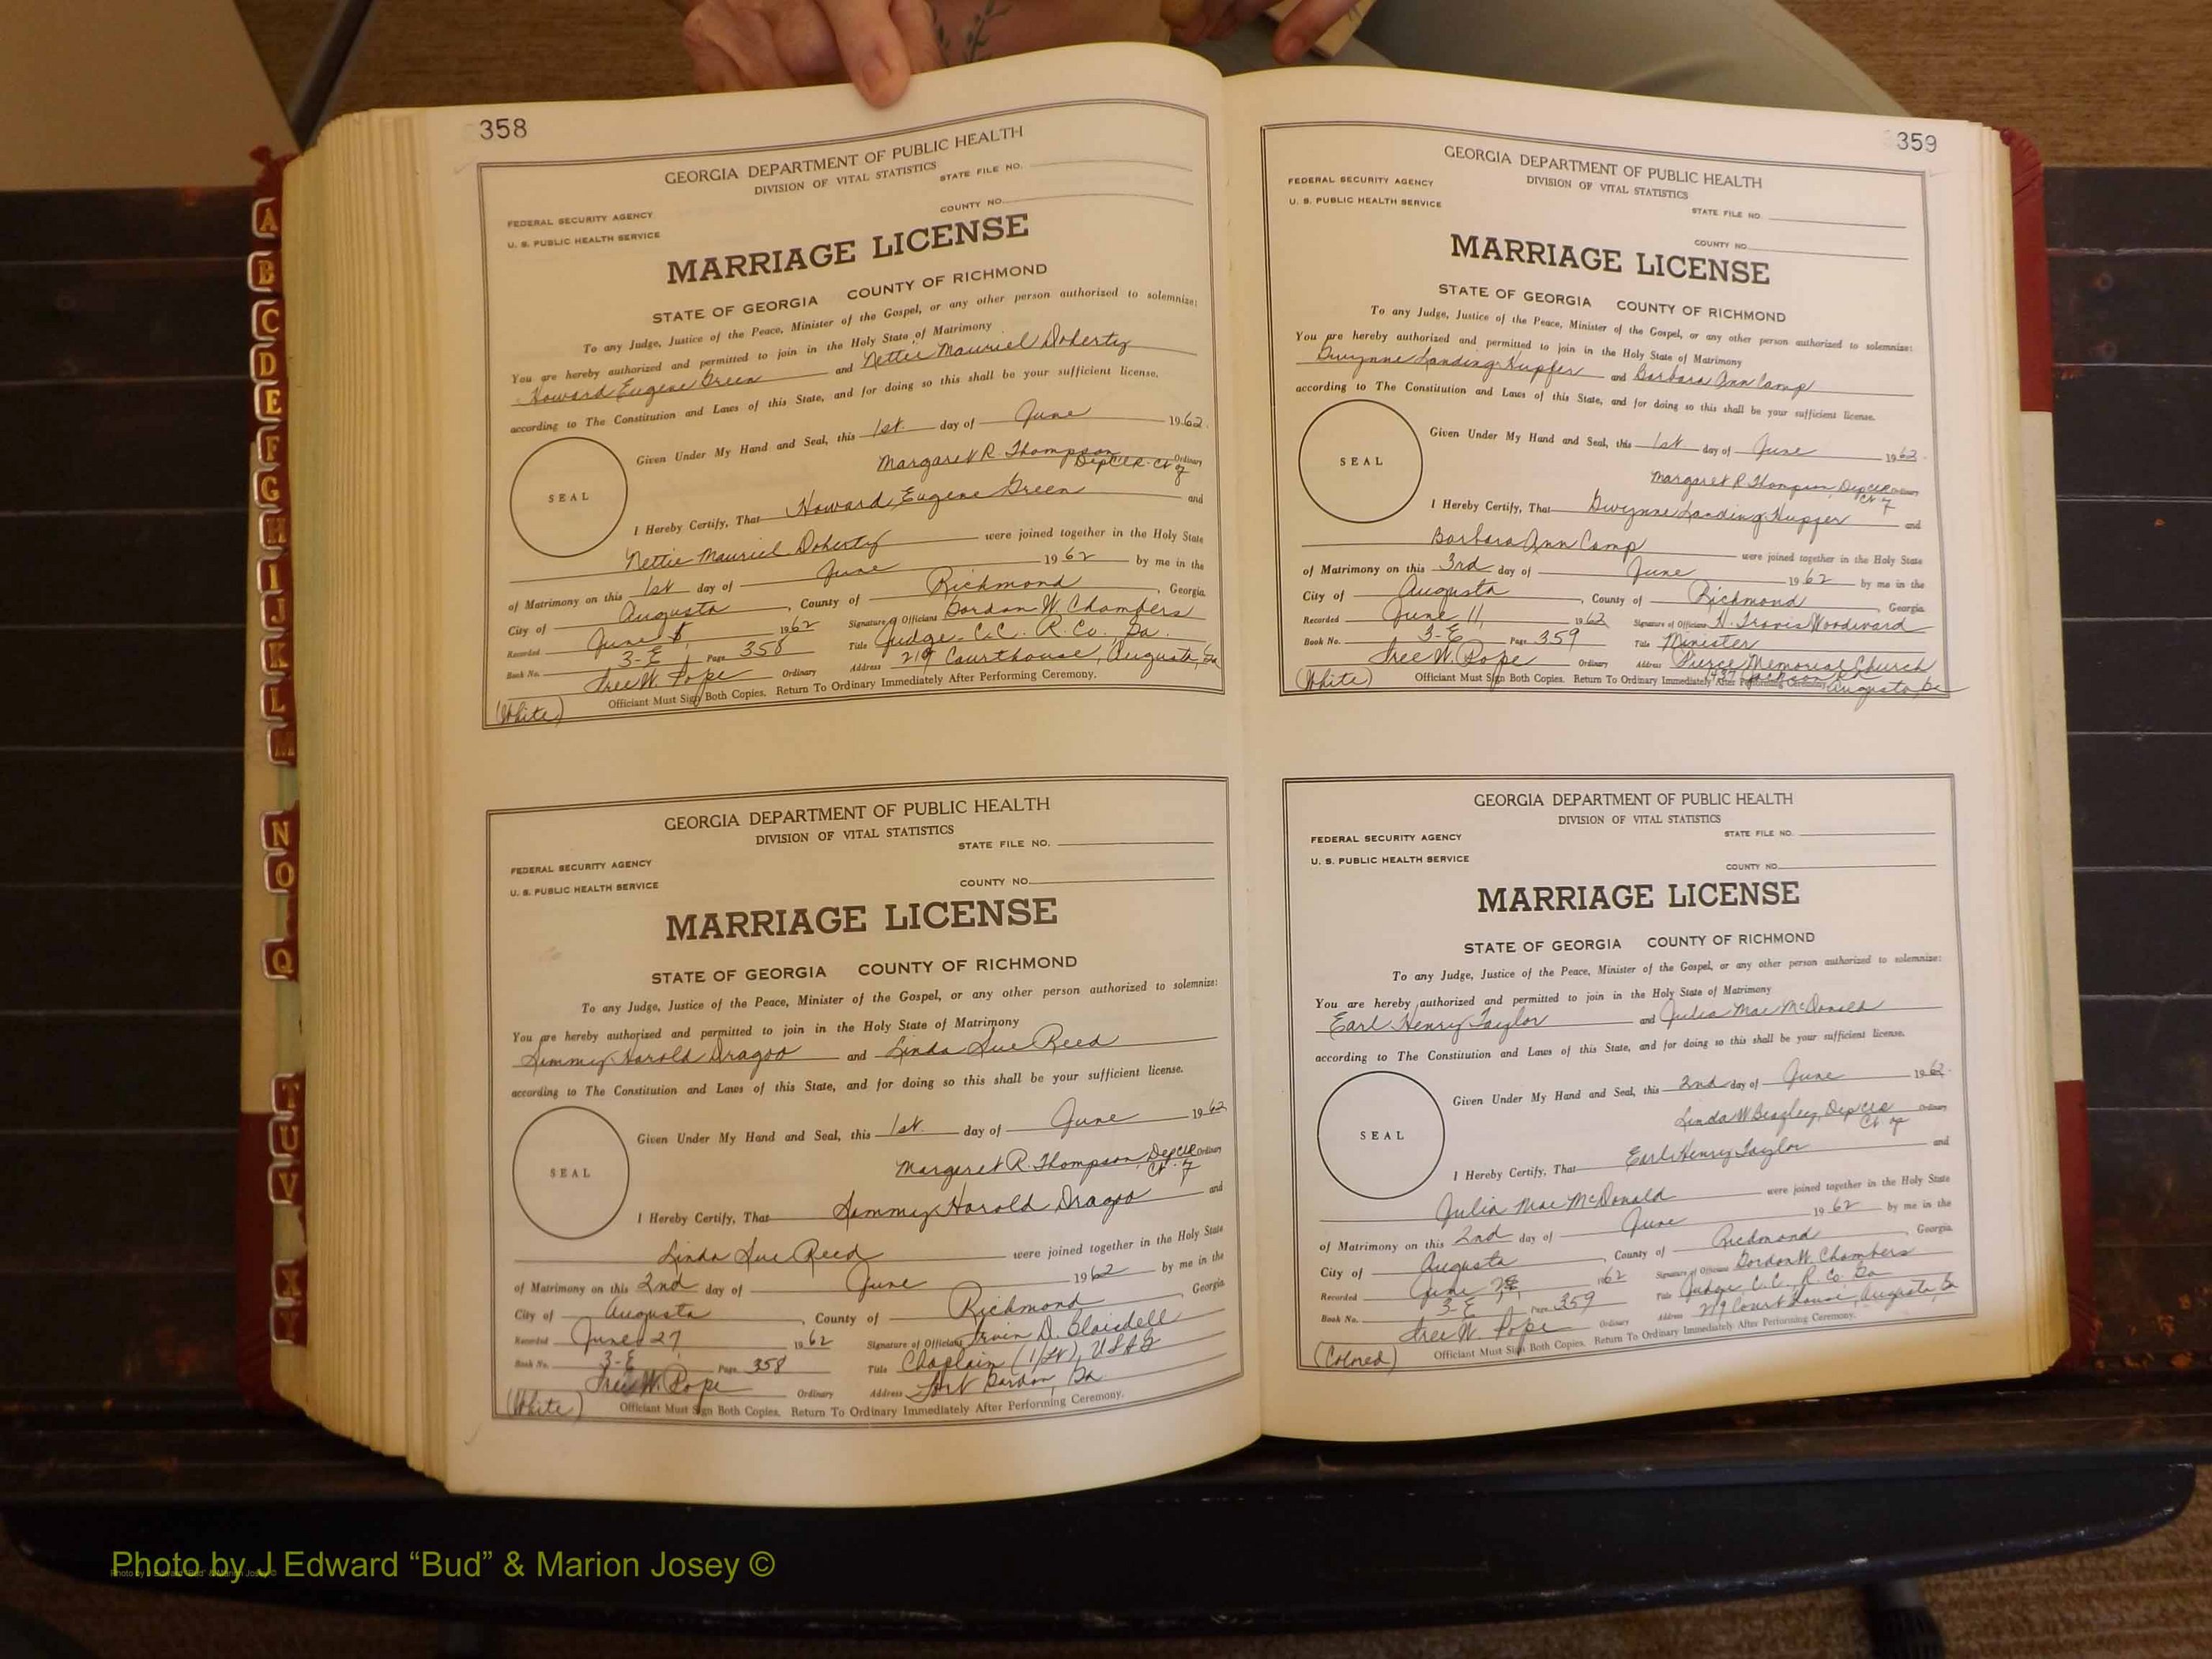 358
GEORGIA DEPARTMENT OF PUBLIC HEALTH
DIVISION OF VITAL STATISTICS
STATE FILE NO.
FEDERAL SECURITY AGENCY
COUNTY NO.
U. S. PUBLIC HEALTH SERVICE
MARRIAGE LICENSE
STATE OF GEORGIA COUNTY OF RICHMOND
To any Judge, Justice of the Peace, Minister of the Gospel, or any other person authorized to solemnize:
You are hereby authorized and permitted to join in the Holy State of Matrimony
Howard Eugene Green and Nettie Mauriel Doherty
according to The Constitution and Laws of this State, and for doing so this shall be your sufficient license.
Given Under My Hand and Seal, this 1st day of June 1962
Margaret R. Thompson Ordinary
Dep CLR. Ct of
SEAL
I Hereby Certify, That Howard Eugene Green and
Nettie Mauriel Doherty were joined together in the Holy State
of Matrimony on this 1st day of June 1962 by me in the
City of Augusta, County of Richmond, Georgia
Recorded June 1962 Signature of Officiant Gordon W. Chambers
Book No. 3-E Page 358 Title Judge C.C. R. Co. Ga.
Free W. Pope Ordinary Address 219 Courthouse, Augusta, Ga
(White) Officiant Must Sign Both Copies. Return To Ordinary Immediately After Performing Ceremony.
GEORGIA DEPARTMENT OF PUBLIC HEALTH
DIVISION OF VITAL STATISTICS
STATE FILE NO.
FEDERAL SECURITY AGENCY
COUNTY NO.
U. S. PUBLIC HEALTH SERVICE
MARRIAGE LICENSE
STATE OF GEORGIA COUNTY OF RICHMOND
To any Judge, Justice of the Peace, Minister of the Gospel, or any other person authorized to solemnize:
You are hereby authorized and permitted to join in the Holy State of Matrimony
Simmy Harold Dragoo and Linda Sue Reed
according to The Constitution and Laws of this State, and for doing so this shall be your sufficient license.
Given Under My Hand and Seal, this 1st day of June 1962
Margaret R. Thompson, Dep CLR Ordinary
Ct. of
SEAL
I Hereby Certify, That Simmy Harold Dragoo and
Linda Sue Reed were joined together in the Holy State
of Matrimony on this 2nd day of June 1962 by me in the
City of Augusta, County of Richmond Georgia
Recorded June 27 1962 Signature of Officiant Irvin D. Blaisdell
Book No. 3-E Page 358 Title Chaplain (1/Lt), USAR
Free W. Pope Ordinary Address Fort Gordon, Ga
(White) Officiant Must Sign Both Copies. Return To Ordinary Immediately After Performing Ceremony.
359
GEORGIA DEPARTMENT OF PUBLIC HEALTH
FEDERAL SECURITY AGENCY
DIVISION OF VITAL STATISTICS
U. S. PUBLIC HEALTH SERVICE
STATE FILE NO.
COUNTY NO.
MARRIAGE LICENSE
STATE OF GEORGIA COUNTY OF RICHMOND
To any Judge, Justice of the Peace, Minister of the Gospel, or any other person authorized to solemnize:
You are hereby authorized and permitted to join in the Holy State of Matrimony
Gwynne Landing Hupfer and Barbara Ann Camp
according to The Constitution and Laws of this State, and for doing so this shall be your sufficient license.
Given Under My Hand and Seal, this 1st day of June 1962
Margaret R Thompson, Dep CLR Ordinary
Ct. of
SEAL
I Hereby Certify, That Gwynne Landing Hupfer and
Barbara Ann Camp were joined together in the Holy State
of Matrimony on this 3rd day of June 1962 by me in the
City of Augusta, County of Richmond, Georgia
Recorded June 11, 1962 Signature of Officiant H. Travis Woodward
Book No. 3-E Page 359 Title Minister
Free W. Pope Ordinary Address Pierce Memorial Church
(White) Officiant Must Sign Both Copies. Return To Ordinary Immediately After Performing Ceremony.
Augusta, Ga
GEORGIA DEPARTMENT OF PUBLIC HEALTH
DIVISION OF VITAL STATISTICS
FEDERAL SECURITY AGENCY
STATE FILE NO.
U. S. PUBLIC HEALTH SERVICE
COUNTY NO.
MARRIAGE LICENSE
STATE OF GEORGIA COUNTY OF RICHMOND
To any Judge, Justice of the Peace, Minister of the Gospel, or any other person authorized to solemnize:
You are hereby authorized and permitted to join in the Holy State of Matrimony
Earl Henry Taylor and Julia Mae McDonald
according to The Constitution and Laws of this State, and for doing so this shall be your sufficient license.
Given Under My Hand and Seal, this 2nd day of June 1962
Linda W Beazley, Dep CLR Ordinary
Ct. of
SEAL
I Hereby Certify, That Earl Henry Taylor and
Julia Mae McDonald were joined together in the Holy State
of Matrimony on this 2nd day of June 1962 by me in the
City of Augusta, County of Richmond, Georgia
Recorded June 1962 Signature of Officiant Gordon W. Chambers
Book No. 3-E Page 359 Title Judge C.C. R. Co. Ga
Free W. Pope Ordinary Address 219 Courthouse, Augusta, Ga
(Colored) Officiant Must Sign Both Copies. Return To Ordinary Immediately After Performing Ceremony.
A
B
C
D
E
F
G
H
I
J
K
L
M
N
O
Q
T
U
V
X
Y
Photo by J Edward “Bud” & Marion Josey ©
Photo by J Edward "Bud" & Marion Josey ©